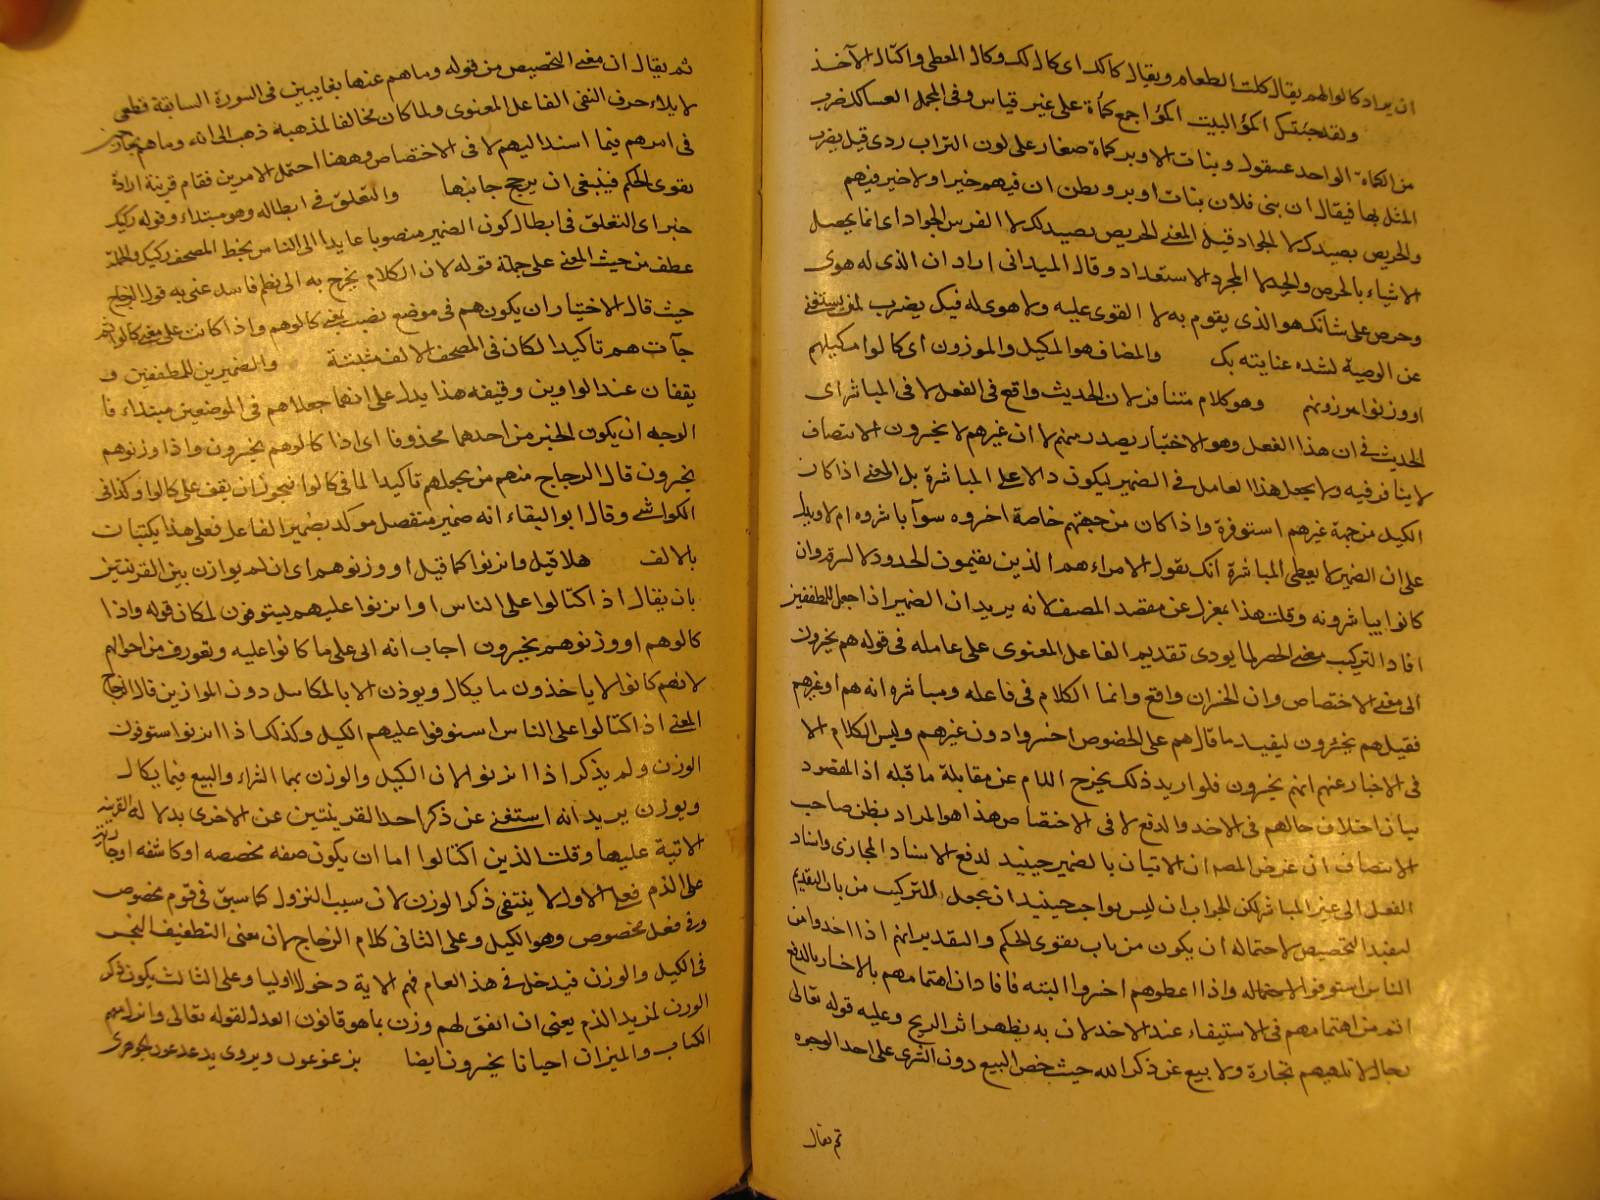 ان يراد كالوا لهم يقال كلت الطعام ويقال كالك اى كال لك وكال المعطى واكتال الآخذ
ولقد جنيتك اكمؤا البيت اكمؤا جمع كمأة على غير قياس وفى المجمل العساكد ضرب
من الكمأة الواحد عسقول وبنات الاوبر كمأة صغار على لون التراب ردى قيل يضرب
المثل بها فيقال ان بنى فلان بنات اوبر ويظن ان فيهم خيرا ولا خير فيهم
والحريص يصيدك لا الجواد قيل المعنى الحريص يصيد لك لا الفرس الجواد اى انما يحصل
الاشياء بالحرص والجد لا المجرد الاستعداد وقال الميدانى اراد ان الذى له هوى
وحرص على شانك هو الذى يقوم به لا القوى عليه ولا هوى له فيك يضرب لمن يستغنى
عن الوصية لشده عنايته بك والمضاف هو المكيل والموزون اى كالوا مكيلهم
او وزنوا موزونهم وهو كلام متنافر لان الحديث واقع فى الفعل لا فى المباشر اى
الحديث فى ان هذا الفعل وهو الاختيار يصدر منهم لا ان غيرهم لا يخسرون الانتصاف
لا يتنافر فيه ولا يجعل هذا العامل فى الضمير ليكون دالا على المباشرة بل المعنى اذا كان
الكيل من جهة غيرهم استوفوه واذا كان من جهتهم خاصة اخروه سوآ باشروه ام لا ويدل
على ان الضمير لا يعطى المباشرة انك تقول الامراء هم الذين يقيمون الحدود لا السوقة وان
كانوا يباشرونه وقلت هذا بمعزل عن مقصد المصنف لانه يريد ان الضمير اذا جعل للمطففين
افاد التركيب معنى الحصر لما يودى تقديم الفاعل المعنوى على عامله فى قوله هم يخسرون
الى معنى الاختصاص وان الخسران واقع وانما الكلام فى فاعله ومباشره انه هم او غيرهم
فقيل هم يخسرون ليفيد ما قال هم على الخصوص اخسروا دون غيرهم وليس الكلام الا
فى الاخبار عنهم انهم يخسرون فلو اريد ذلك يخرج الكلام عن مقابلة ما قبله اذ المقصود
بيان اختلاف حالهم فى الاخذ والدفع لا فى الاختصاص هذا هو المراد بظن صاحب
الانتصاف ان غرض المصه ان الاتيان بالضمير حينئذ لدفع الاسناد المجازى واسناد
الفعل الى غير المباشر لكن الجواب ان ليس بواجب حينيد ان يجعل التركيب من باب التقديم
ليفيد التخصيص لاحتماله ان يكون من باب تقوى الحكم والتقدير انهم اذا اخذوا من
الناس استوفوا لا محاله واذا اعطوهم اخسروا البته فافاد ان اهتمامهم بالاخسار بالدفع
اتم من اهتمامهم فى الاستيفاء عند الاخذ لان به يظهر اثر الربح وعليه قوله تعالى
رجال لا تلهيهم تجارة ولا بيع عن ذكر الله حيث خص البيع دون الشرى على احد الوجوه
ثم يقال
ثم يقال ان معنى التخصيص من قوله وما هم عنها بغايبين فى السورة السابقة قطعى
لايلاء حرف النفى الفاعل المعنوى ولما كان مخالفا لمذهبه ذهب الى انه وما هم بخارجين
فى امرهم فيما اسند اليهم لا فى الاختصاص وههنا احتمل الامرين فقام قرينة ارادة
تقوى الحكم فينبغى ان يرجح جانبها والتعلق فى ابطاله وهو مبتداء وقوله ركيك
خبر اى التعلق فى ابطال كون الضمير منصوبا عايدا الى الناس بخط المصحف ركيك والجملة
عطف من حيث المعنى على جملة قوله لان الكلام يخرج به الى نظم فاسد عنى به قول الزجاج
حيث قال الاختيار ان يكون هم فى موضع نصب بمعنى كالوهم واذا كانت على معنى كالوا ثم
جآت هم تاكيدا لكان فى المصحف الالف مثبتة والضميرين للمطففين و
يقفان عند الواوين وقيفه هذا يدل على انهما جعلا هم فى الموضعين مبتداء فا
الوجه ان يكون الخبر من احدهما محذوفا اى اذا كالوهم يخسرون واذا وزنوهم
يخسرون قال الزجاج منهم من يجعلهم تاكيدا لما فى كالوا فيجوز ان يقف على كالوا وكذا فى
الكواشى وقال ابو البقاء انه ضمير منفصل موكد بضمير الفاعل فعلى هذا يكتبان
بالالف هلا قيل واتزنوا كما قيل او وزنوهم اى ان لم يوازن بين القرينتين
بان يقال اذا اكتالوا على الناس او اتزنوا عليهم يستوفون لمكان قوله واذا
كالوهم او وزنوهم يخسرون اجاب انه اتى على ما كانوا عليه وتعورف من احوالهم
لانهم كانوا لا ياخذون ما يكال ويوزن الا بالمكاييل دون الموازين قال الزجاج
المعنى اذا اكتالوا على الناس استوفوا عليهم الكيل وكذلك اذا اتزنوا استوفوا
الوزن ولم يذكر اذا اتزنوا لان الكيل والوزن بهما الشراء والبيع فيما يكال
ويوزن يريد انه استغنى عن ذكر احد القرينتين عن الاخرى بدلالة القرينة
الاتية عليها وقلت الذين اكتالوا اما ان يكون صفه مخصصه او كاشفه او جارية
على الذم فعلى الاول لا ينتفى ذكر الوزن لان سبب النزول كما سبق فى قوم مخصوص
وفى فعل مخصوص وهو الكيل وعلى الثانى كلام الزجاج لان معنى التطفيف البخس
فى الكيل والوزن فيدخل فى هذا العام فهم الاية دخولا اوليا وعلى الثالث يكون ذكر
الوزن لمزيد الذم يعنى ان اتفق لهم وزن بما هو قانون العدل لقوله تعالى وانزلنا معهم
الكتاب والميزان احيانا يخسرون ايضا يزعزعون ويروى يدعدعون الجوهرى